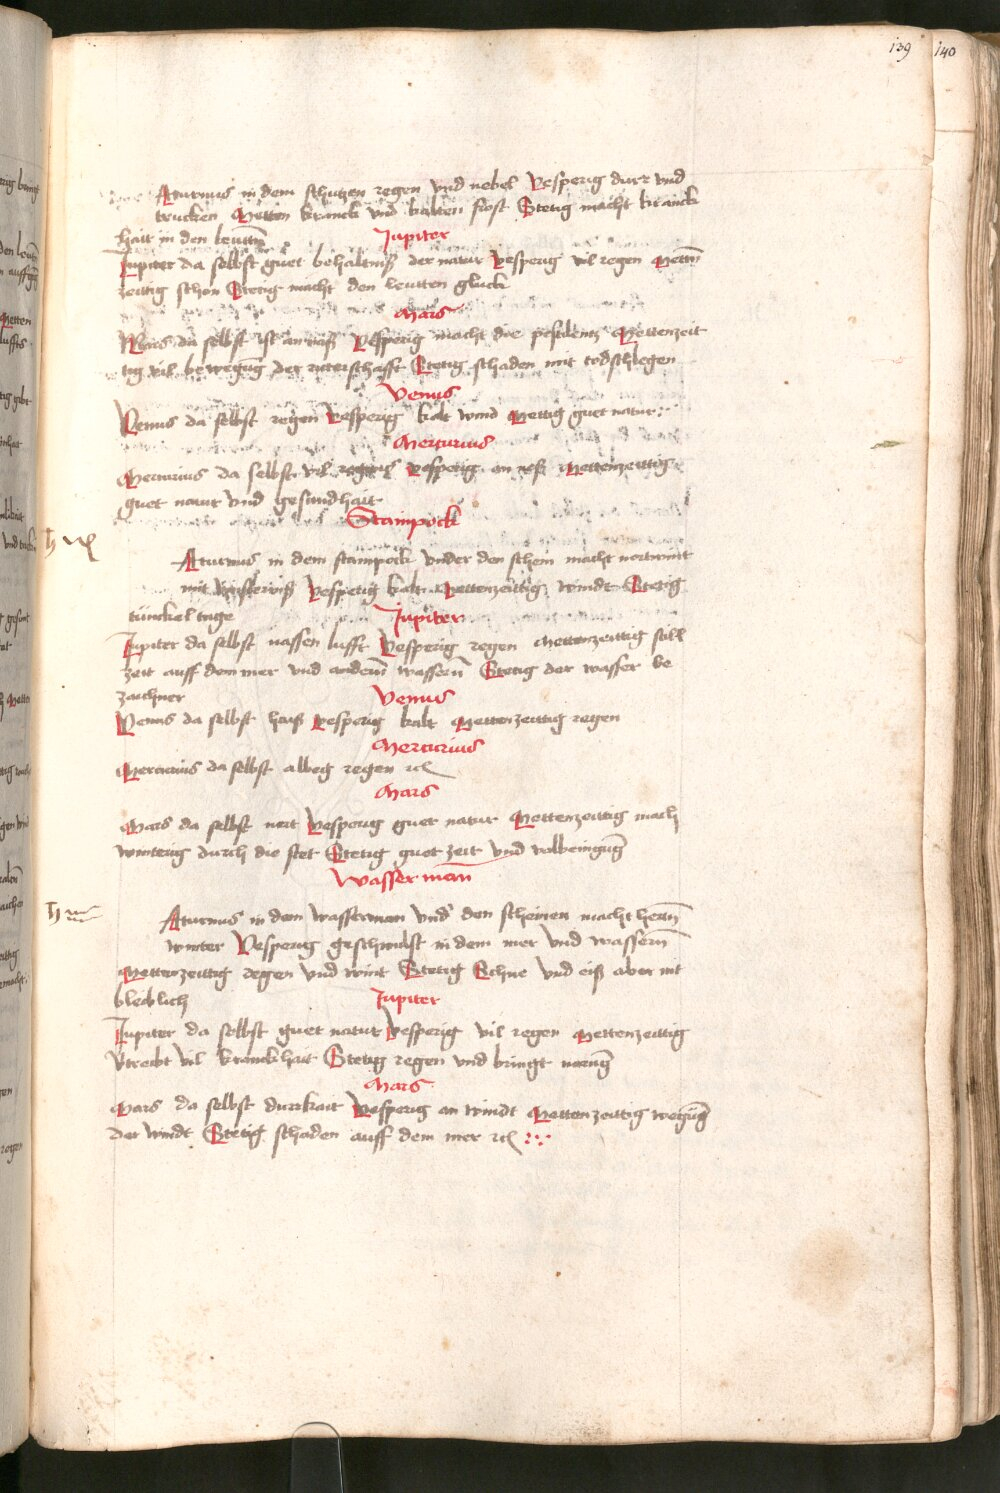 139 140
Aturnus in dem schutzen regen vnd nebel Vesperig durr vnd
trucken Metten kranck vnd kalten frost Stetig macht kranck
hait in den leuttn
Jupiter
Jupiter da selbst guet behaltnuß der natur Vesperig vil regen Mettn
zeittig schon Stetig macht den leutten gluck
Mars
Mars da selbst ist an naß Vesperig macht die pestilentz Mettenzeit
tig vil bewegung der ritterschafft Stetig schaden mit todschlegen
Venus
Venus da selbst regen Vesperig kalt wind Mettig guet natur
Mercurius
Mercurius da selbst vil regens Vesperig an neß Mettenzeittig
guet natur vnd gesundhait
Stainpock
♄
Aturnus in dem stainpock vnder den schein macht
mit Vinsternuß Vesperig kalt Mettenzeittig windt Stetig
tunckel tage
Jupiter
Jupiter da selbst nassen lufft Vesperig regen Mettenzeittig still
zeit auff dem mer vnd andern wassern Stetig der wasser be
zaichner
Venus
Venus da selbst haiß Vesperig kalt Mettenzeittig regen
Mercurius
Mercurius da selbst albeg regen etc
Mars
Mars da selbst nert Vesperig guet natur Mettenzeittig mach
wintterig durch die stet Stetig guet zeit vnd volbringung
Wasserman
♄ ♒
Aturnus in dem wasserman vnd den scheinen macht hertn
winter Vesperig geschwulst in dem mer vnd wassern
Mettenzeittig regen vnd wint Stetig Schne vnd eiß aber nit
bleiblich
Jupiter
Jupiter da selbst guet natur Vesperig vil regen Mettenzeittig
vtreibt vil kranckhait Stetig regen vnd bringt narung
Mars
Mars da selbst durrkait Vesperig an windt Mettenzeittig wegung
der windt Stetig schaden auff dem mer etc